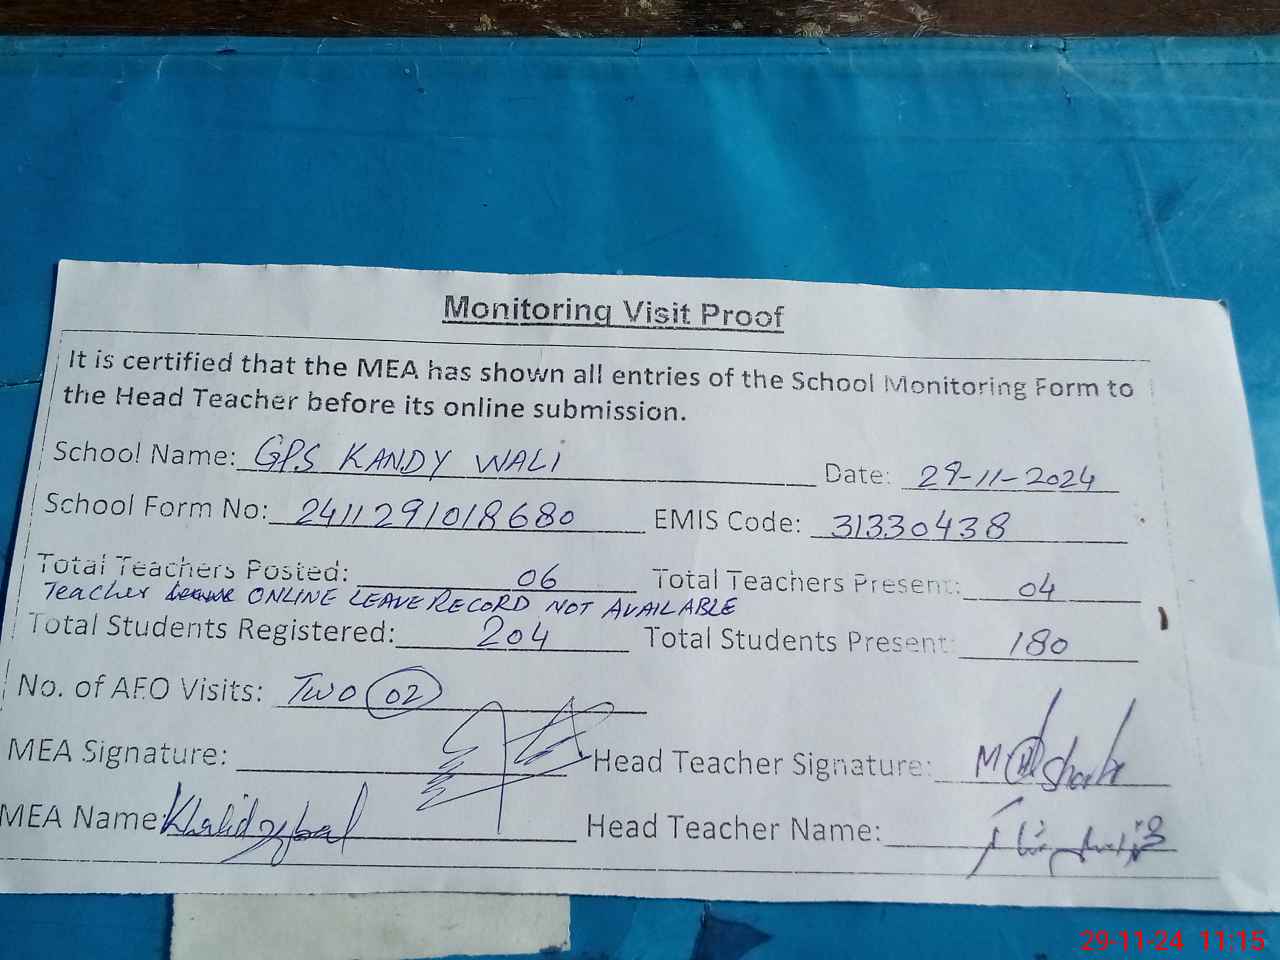 Monitoring Visit Proof
It is certified that the MEA has shown all entries of the School Monitoring Form to
the Head Teacher before its online submission.
School Name: GPS KANDY WALI Date: 29-11-2024
School Form No: 2411291018680 EMIS Code: 31330438
Total Teachers Posted: 06 Total Teachers Present: 04
Teacher ONLINE LEAVE RECORD NOT AVAILABLE
Total Students Registered: 204 Total Students Present: 180
No. of AEO Visits: TWO 02
MEA Signature: Head Teacher Signature:
MEA Name: Khalid Iqbal Head Teacher Name:
29-11-24 11:15